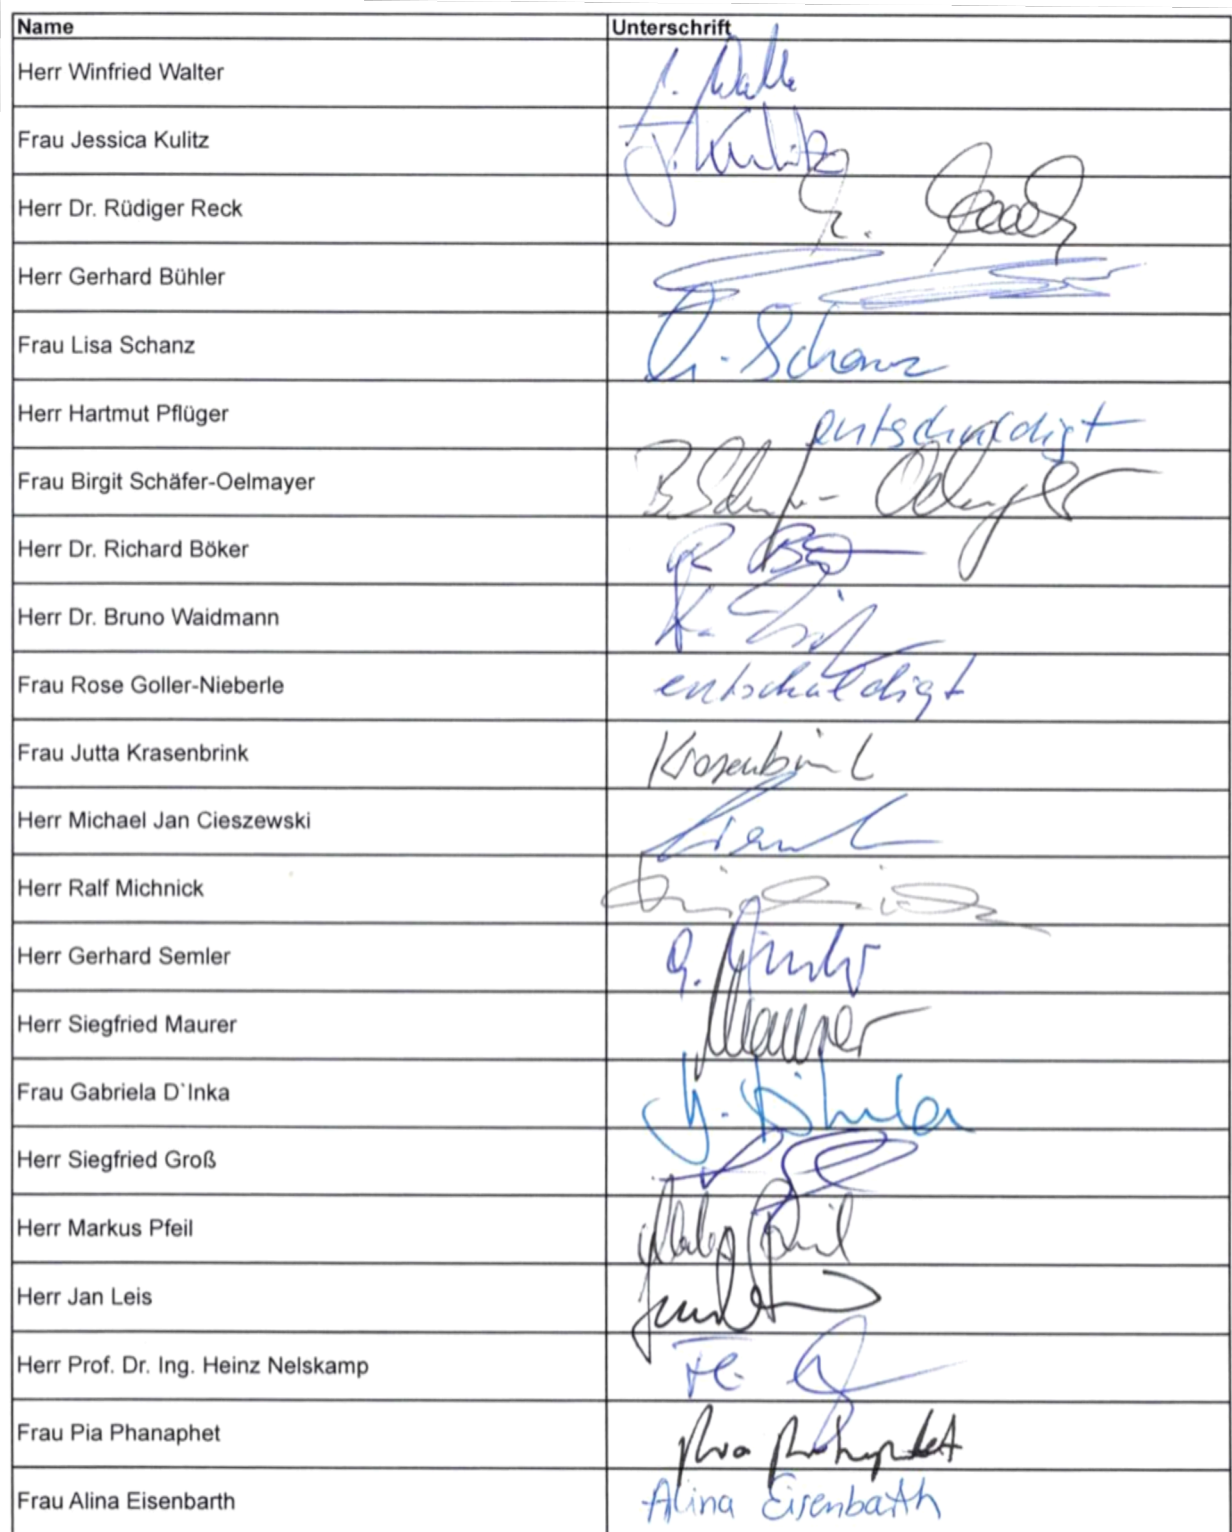 Name Unterschrift
Herr Winfried Walter
Frau Jessica Kulitz J. Kulitz
Herr Dr. Rüdiger Reck
Herr Gerhard Bühler
Frau Lisa Schanz Schanz
Herr Hartmut Pflüger entschuldigt
Frau Birgit Schäfer-Oelmayer
Herr Dr. Richard Böker
Herr Dr. Bruno Waidmann
Frau Rose Goller-Nieberle entschuldigt
Frau Jutta Krasenbrink Krasenbrink
Herr Michael Jan Cieszewski
Herr Ralf Michnick
Herr Gerhard Semler
Herr Siegfried Maurer Maurer
Frau Gabriela D`Inka
Herr Siegfried Groß
Herr Markus Pfeil
Herr Jan Leis
Herr Prof. Dr. Ing. Heinz Nelskamp
Frau Pia Phanaphet Pia Phanaphet
Frau Alina Eisenbarth Alina Eisenbarth